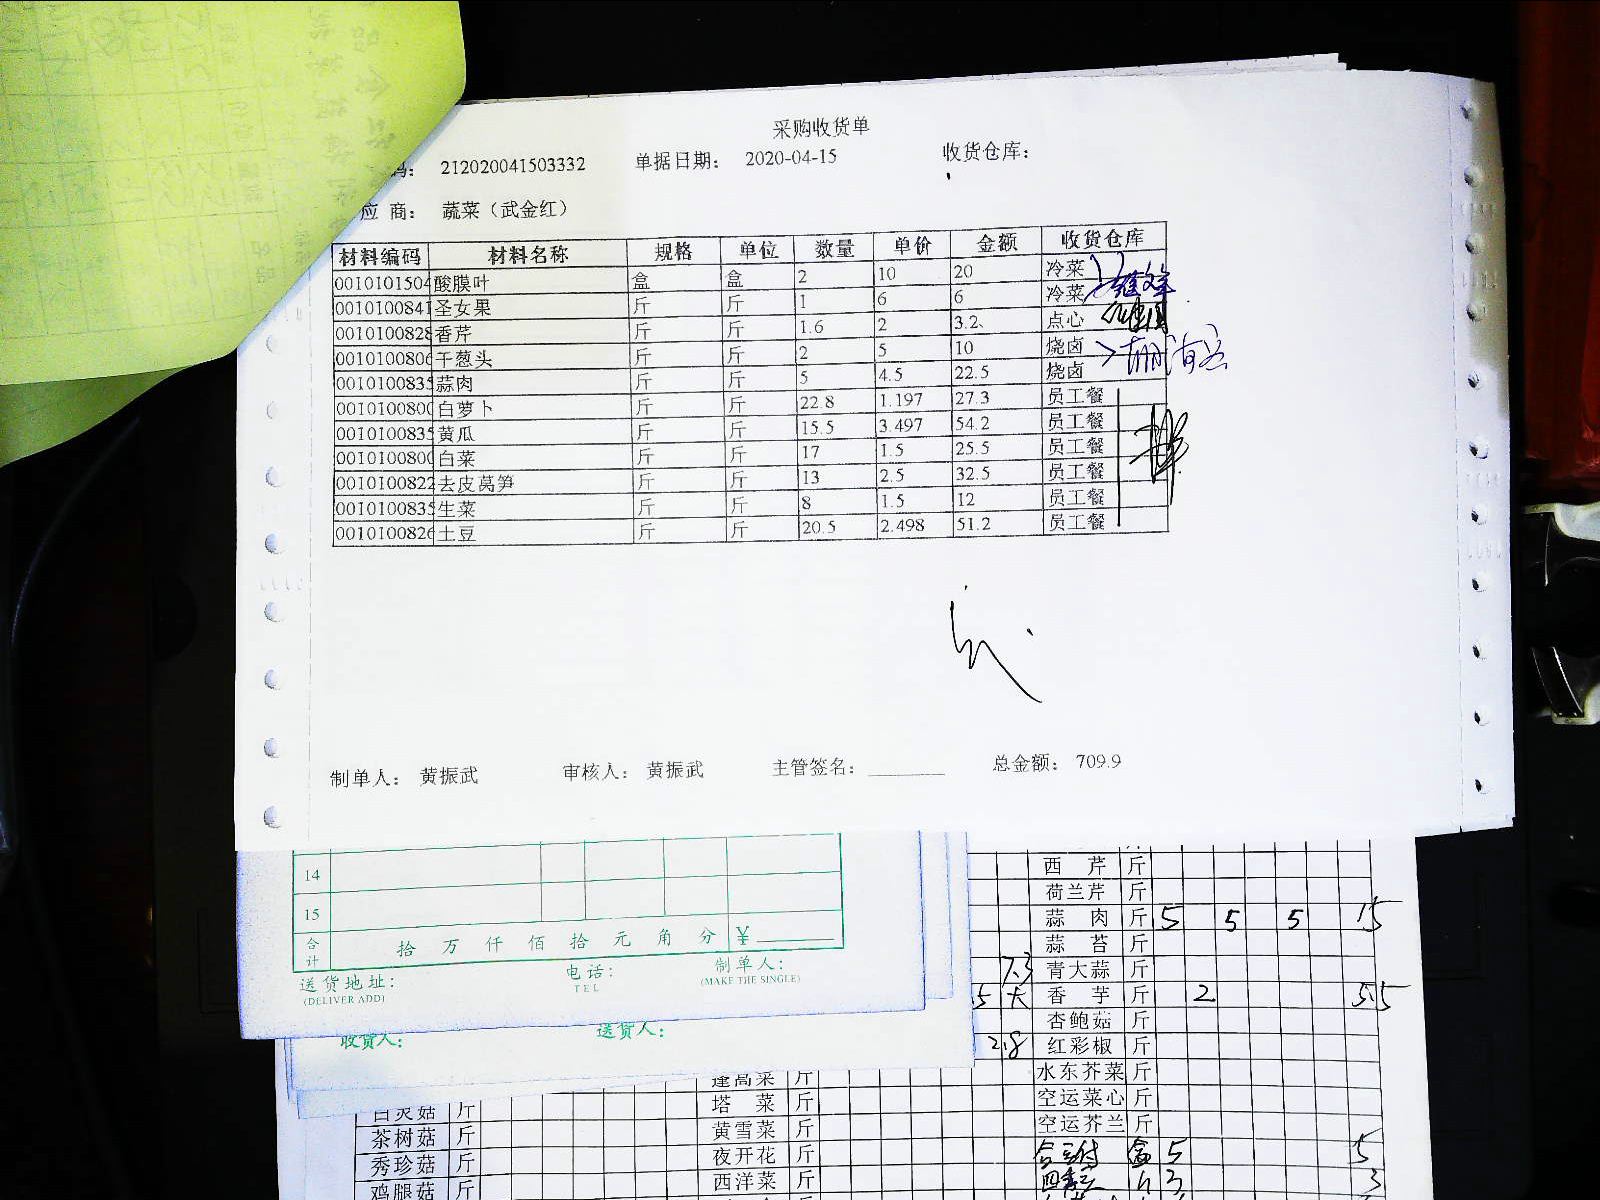 采购收货单
码： 212020041503332 单据日期： 2020-04-15 收货仓库：
应 商： 蔬菜（武金红）
材料编码 材料名称 规格 单位 数量 单价 金额 收货仓库
0010101504 酸膜叶 盒 盒 2 10 20 冷菜
001010084 圣女果 斤 斤 1 6 6 冷菜
0010100828 香芹 斤 斤 1.6 2 3.2 点心
001010080 干葱头 斤 斤 2 5 10 烧卤
001010083 蒜肉 斤 斤 5 4.5 22.5 烧卤
001010080 白萝卜 斤 斤 22.8 1.197 27.3 员工餐
001010083 黄瓜 斤 斤 15.5 3.497 54.2 员工餐
001010080 白菜 斤 斤 17 1.5 25.5 员工餐
0010100822 去皮莴笋 斤 斤 13 2.5 32.5 员工餐
001010083 生菜 斤 斤 8 1.5 12 员工餐
001010082 土豆 斤 斤 20.5 2.498 51.2 员工餐
制单人： 黄振武 审核人： 黄振武 主管签名： 总金额： 709.9
14
15
合计 拾 万 仟 佰 拾 元 角 分 ¥
送货地址： 电话： 制单人：
(DELIVER ADD) TEL (MAKE THE SINGLE)
收货人： 送货人：
西 芹 斤
荷兰芹 斤
蒜 肉 斤 5 5 5 15
蒜 苔 斤
7.3 青大蒜 斤
香 芋 斤 2 5.5
杏鲍菇 斤
2.8 红彩椒 斤
蓬蒿菜 斤 水东芥菜 斤
白灵菇 斤 塔 菜 斤 空运菜心 斤
茶树菇 斤 黄雪菜 斤 空运芥兰 斤
秀珍菇 斤 夜开花 斤 盒 5 5
鸡腿菇 斤 西洋菜 斤 3 3